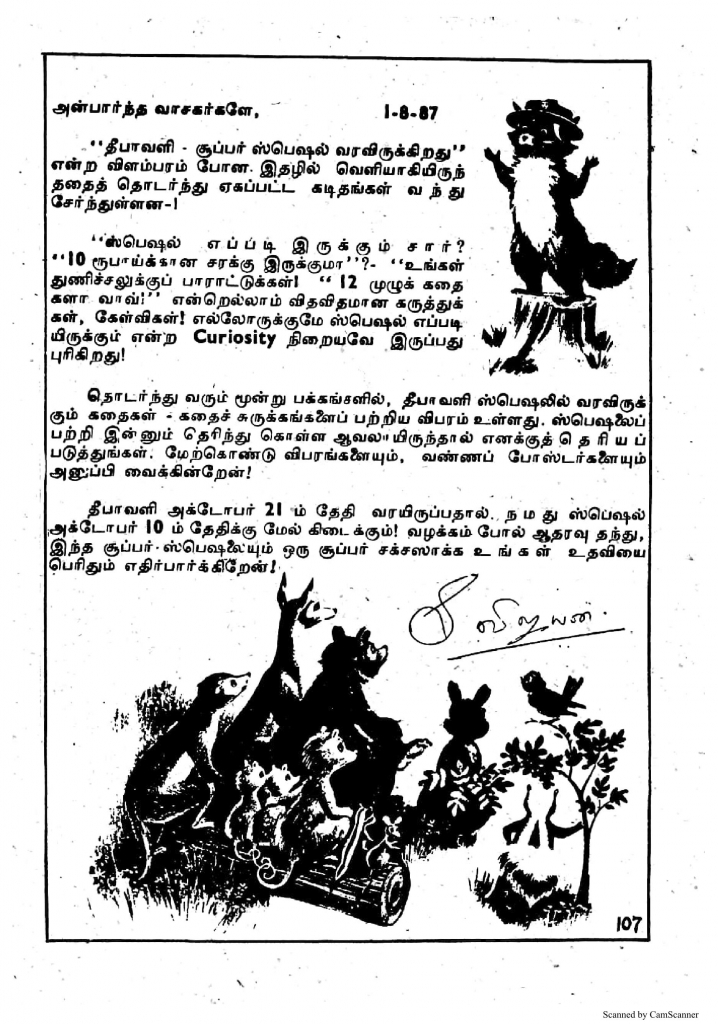 அன்பார்ந்த வாசகர்களே, 1-8-87
"தீபாவளி - சூப்பர் ஸ்பெஷல் வரவிருக்கிறது"
என்ற விளம்பரம் போன இதழில் வெளியாகியிருந்
ததைத் தொடர்ந்து ஏகப்பட்ட கடிதங்கள் வந்து
சேர்ந்துள்ளன-!
"ஸ்பெஷல் எப்படி இருக்கும் சார்?
"10 ரூபாய்க்கான சரக்கு இருக்குமா"?- "உங்கள்
துணிச்சலுக்குப் பாராட்டுக்கள்! "12 முழுக் கதை
களா வாவ்!" என்றெல்லாம் விதவிதமான கருத்துக்
கள், கேள்விகள்! எல்லோருக்குமே ஸ்பெஷல் எப்படி
யிருக்கும் என்ற Curiosity நிறையவே இருப்பது
புரிகிறது!
தொடர்ந்து வரும் மூன்று பக்கங்களில், தீபாவளி ஸ்பெஷலில் வரவிருக்
கும் கதைகள் - கதைச் சுருக்கங்களைப் பற்றிய விபரம் உள்ளது. ஸ்பெஷலைப்
பற்றி இன்னும் தெரிந்து கொள்ள ஆவலாயிருந்தால் எனக்குத் தெரியப்
படுத்துங்கள். மேற்கொண்டு விபரங்களையும், வண்ணப் போஸ்டர்களையும்
அனுப்பி வைக்கின்றேன்!
தீபாவளி அக்டோபர் 21 ம் தேதி வரயிருப்பதால். நமது ஸ்பெஷல்
அக்டோபர் 10 ம் தேதிக்கு மேல் கிடைக்கும்! வழக்கம் போல் ஆதரவு தந்து,
இந்த சூப்பர்-ஸ்பெஷலையும் ஒரு சூப்பர் சக்ஸஸாக்க உங்கள் உதவியை
பெரிதும் எதிர்பார்க்கிறேன்!
விஜயன்.
107
Scanned by CamScanner